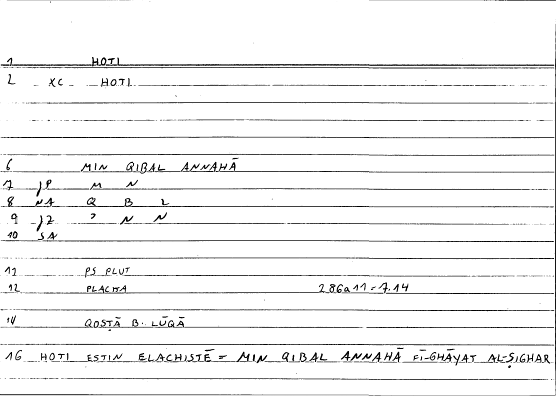 1 HOTI
2 XC HOTI
6 MIN QIBAL ANNAHĀ
7 JP M N
8 NA Q B L
9 J2 ' N N
10 SA
11 PS PLUT
12 PLACITA 286a11 = 7.14
14 QOSṬĀ B. LŪQĀ
16 HOTI ESTIN ELACHISTĒ = MIN QIBAL ANNAHĀ FĪ-GHĀYAT AL-ṢIGHAR